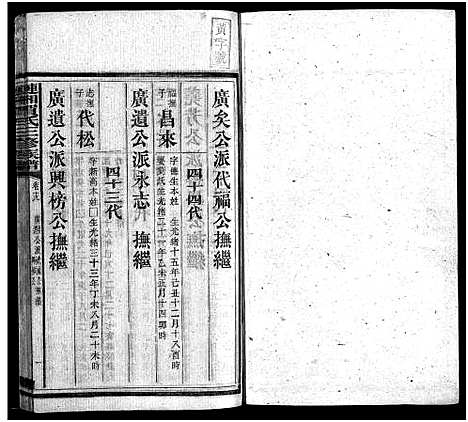 黃字號
廣矣公派代福公撫繼
四十四代
福撫
昌來
字德生本姓 生光緒十五年己丑十二月十八酉時
娶劉氏生光緒二十一年乙未正月十四卯時
廣遺公派永志 撫繼
四十三代
志撫
代松
字新高本姓□生光緒三十三年丁未八月二十未時
廣遺公派興榜公撫繼
三修族譜